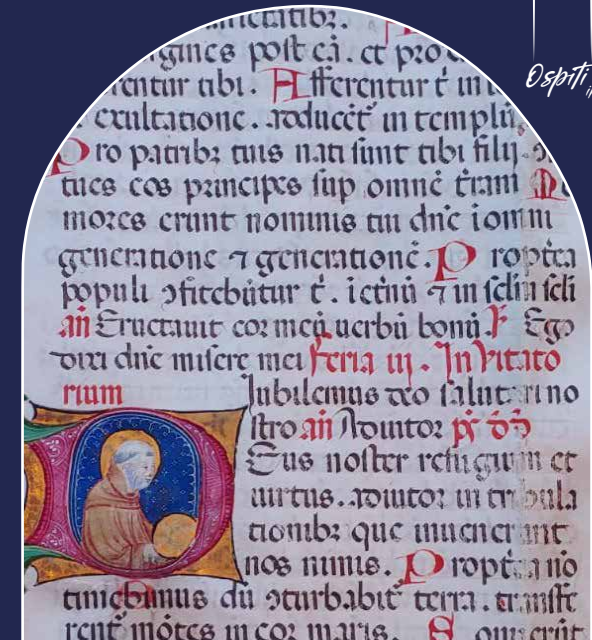 gines post eā. et pro
rentur tibi. Afferentur t̄ in
exultatione. adducēt in templū
Pro patribꝫ tuis nati sunt tibi filij.
tues eos principes sup omnē t̄ram
mores erunt nominis tui dn̄e ī omni
generatione ⁊ generationē. Propt̄ea
populi ↄfitebūtur t̄. ī etnū ⁊ in sclm̄ scli
an̄ Eructauit cor meū uerbū bonū. Ego
dixi dn̄e misere mei feria iij. Inuitato
rium Iubilemus deo salutari no
stro an̄ Adiutor
Deus noster refugium et
uirtus. adiutor in tribula
tionibꝫ que inuenerunt
nos nimis. Propt̄ea nō
timebimus dū ↄturbabit̄ terra. transfe
rent̄ mōtes in cor maris.
Ospiti